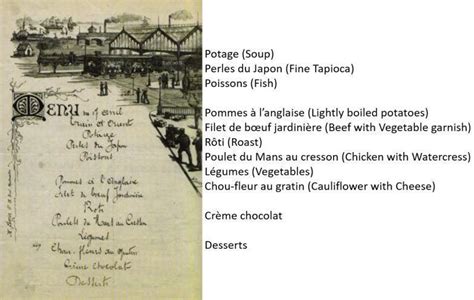 MENU
Potage
Perles du Japon
Poissons
Pommes à l'anglaise
Filet de bœuf Jardinière
Rôti
Poulets du Mans au Cresson
Légumes
Chou-fleurs au gratin
Crème chocolat
Desserts
Potage (Soup)
Perles du Japon (Fine Tapioca)
Poissons (Fish)
Pommes à l’anglaise (Lightly boiled potatoes)
Filet de bœuf jardinière (Beef with Vegetable garnish)
Rôti (Roast)
Poulet du Mans au cresson (Chicken with Watercress)
Légumes (Vegetables)
Chou-fleur au gratin (Cauliflower with Cheese)
Crème chocolat
Desserts